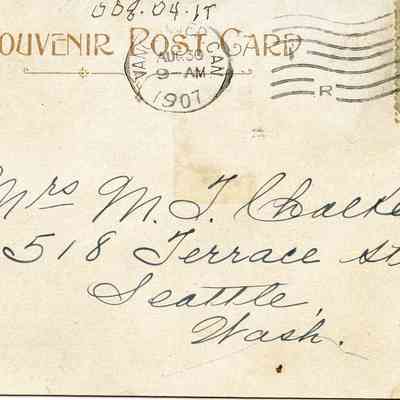 OUVENIR POST CARD
CAN
AUG 30
9-AM
1907
R
Mrs M. T. Chalke
518 Terrace st
Seattle,
Wash.